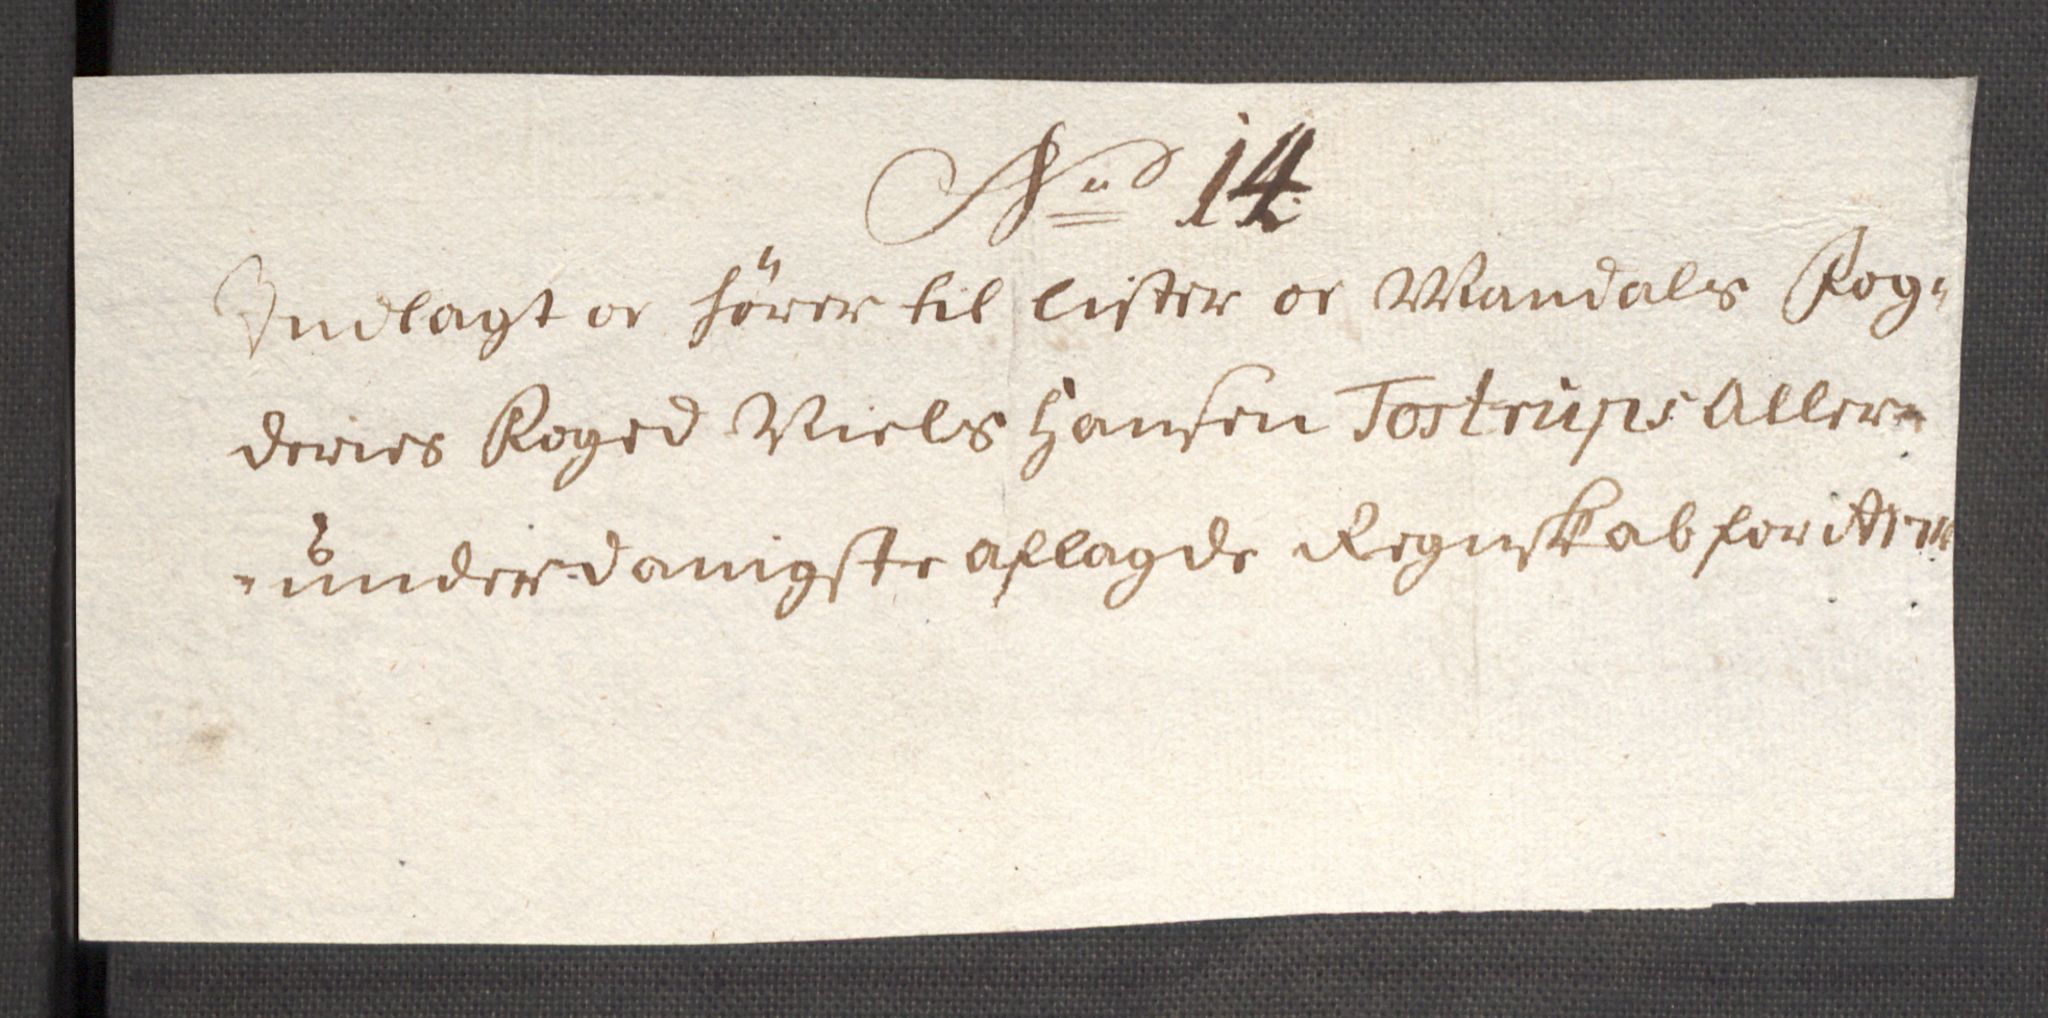 No 14
Indlagt oc hörer til Lister oc Mandals Fog=
deries Foged Niels Hansen Tostrups Aller=
=underdanigste aflagde Regnskab for